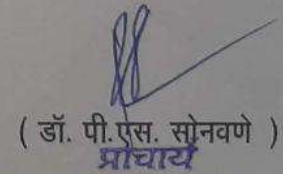 ( डॉ. पी.एस. सोनवणे )
प्राचार्य